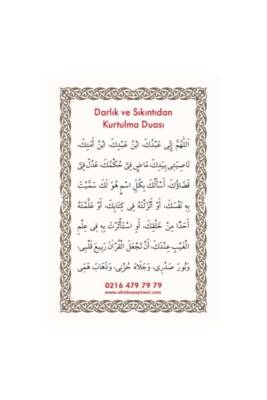 Darlık ve Sıkıntıdan
Kurtulma Duası
اَللّٰهُمَّ إِنِّي عَبْدُكَ، اِبْنُ عَبْدِكَ، اِبْنُ أَمَتِكَ،
نَاصِيَتِي بِيَدِكَ، مَاضٍ فِيَّ حُكْمُكَ، عَدْلٌ فِيَّ
قَضَاؤُكَ، أَسْأَلُكَ بِكُلِّ اسْمٍ هُوَ لَكَ سَمَّيْتَ
بِهِ نَفْسَكَ، أَوْ أَنْزَلْتَهُ فِي كِتَابِكَ، أَوْ عَلَّمْتَهُ
أَحَدًا مِنْ خَلْقِكَ، أَوِ اسْتَأْثَرْتَ بِهِ فِي عِلْمِ
الْغَيْبِ عِنْدَكَ، أَنْ تَجْعَلَ الْقُرْآنَ رَبِيعَ قَلْبِي،
وَنُورَ صَدْرِي، وَجَلَاءَ حُزْنِي، وَذَهَابَ هَمِّي
0216 479 79 79